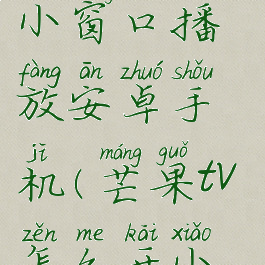 小窗口播
fàng ān zhuó shǒu
放安卓手
jī máng guǒ
机(芒果tV
zěn me kāi xiǎo
怎么开小